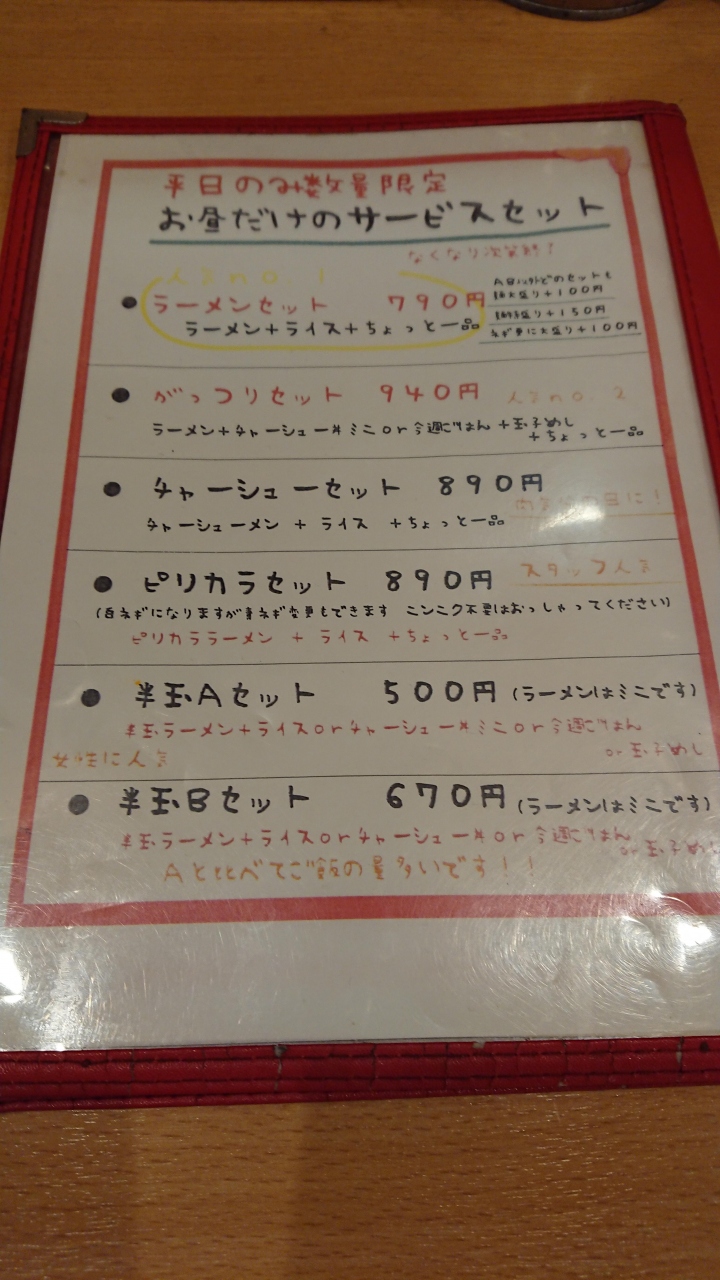 平日のみ数量限定
お昼だけのサービスセット
なくなり次第終了
人気no.1
ラーメンセット 790円
ラーメン+ライス+ちょっと一品
AB以外どのセットも
麺大盛り+100円
麺特盛り+150円
ネギ夢に大盛り+100円
がっつりセット 940円 人気no.2
ラーメン+チャーシュー丼ミニor今週ごはん+玉子めし
+ちょっと一品
チャーシューセット 890円
肉気分の日に!
チャーシューメン + ライス +ちょっと一品
ピリカラセット 890円 スタッフ人気
(白ネギになりますが青ネギ変更もできます ニンニク不要はおっしゃってください)
ピリカララーメン + ライス +ちょっと一品
半玉Aセット 500円 (ラーメンはミニです)
半玉ラーメン+ライスorチャーシュー丼ミニor今週ごはん
or玉子めし
女性に人気
半玉Bセット 670円 (ラーメンはミニです)
半玉ラーメン+ライスorチャーシュー丼or今週ごはん
or玉子めし
Aと比べてご飯の量多いです!!